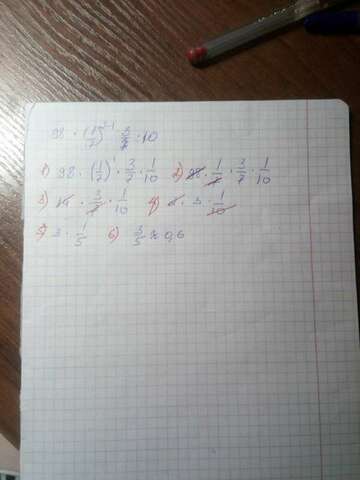 98 · (1/7)^-1 3/7 · 10
1) 98 · (1/7)^1 · 3/7 · 1/10 2) 98 · 1/7 · 3/7 · 1/10
3) 14 · 3/7 · 1/10 4) 2 · 3 · 1/10
5) 3 · 1/5 6) 3/5 ≈ 0,6